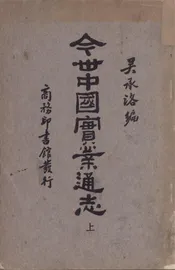 吴承洛編
今世中國實業通志
上
商務印書館發行